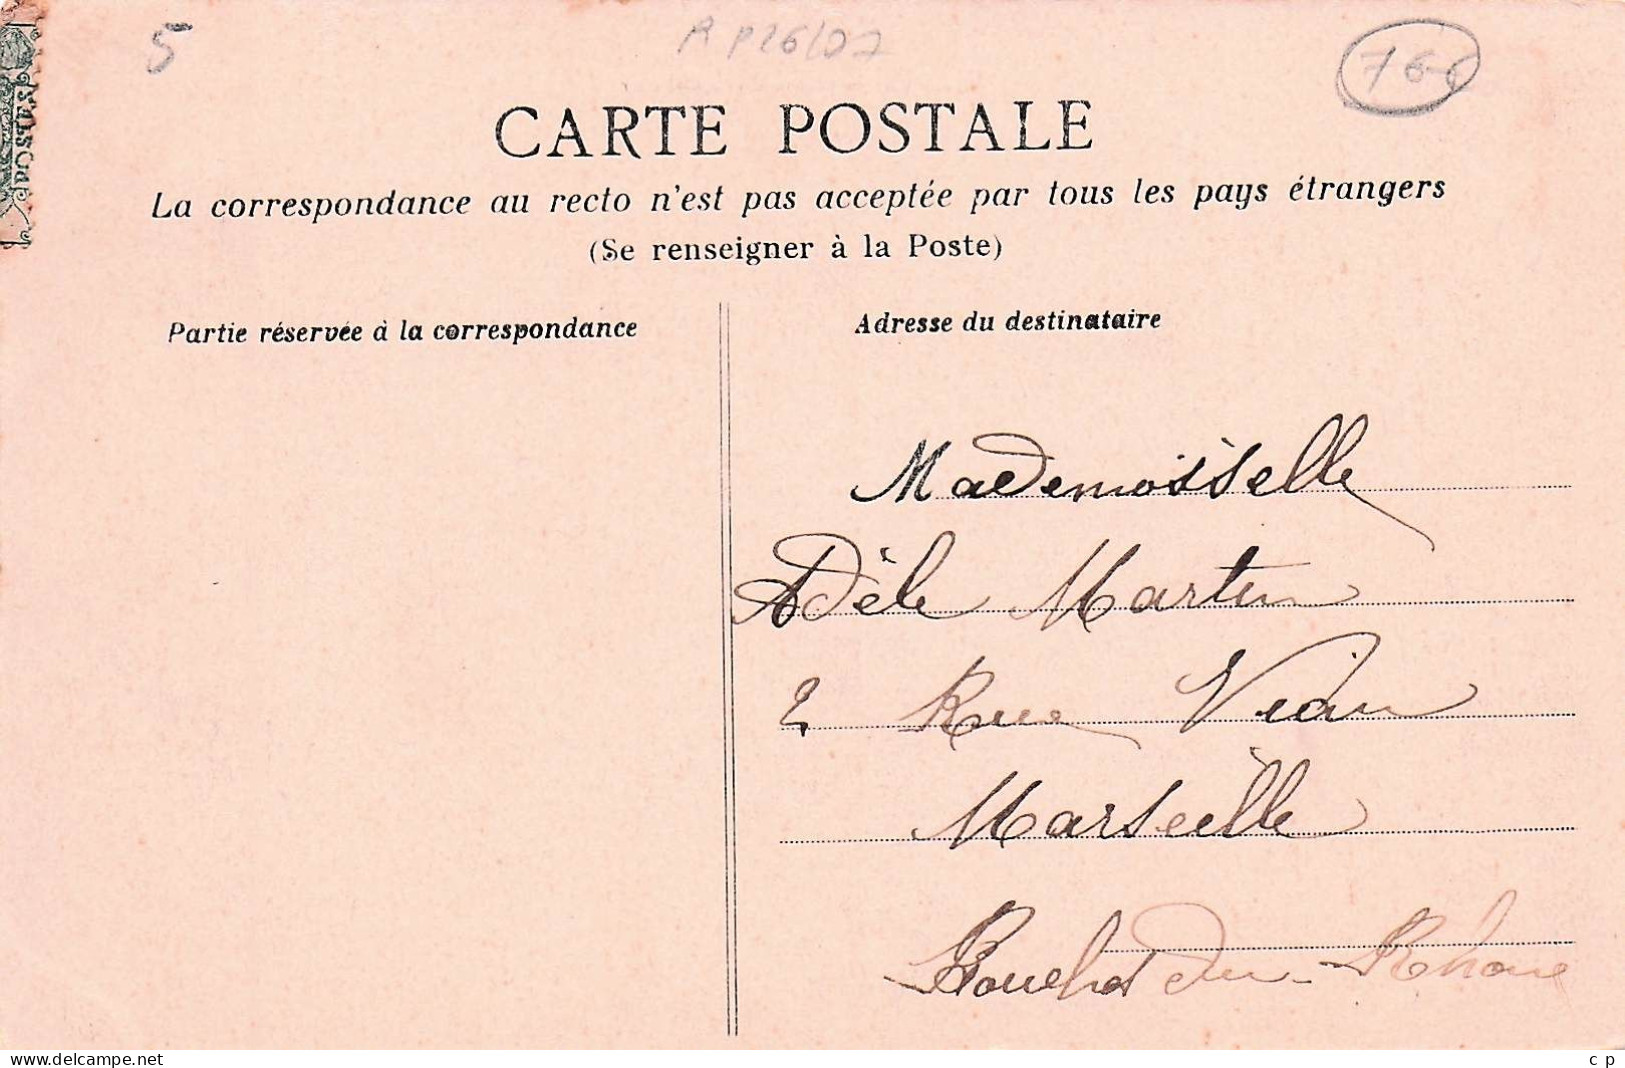 5
766
CARTE POSTALE
La correspondance au recto n'est pas acceptée par tous les pays étrangers
(Se renseigner à la Poste)
Partie réservée à la correspondance
Adresse du destinataire
Mademoisselle
Adèle Martin
2 Rue Vian
Marseille
Bouches du-Rhone
delcampe.net
c p